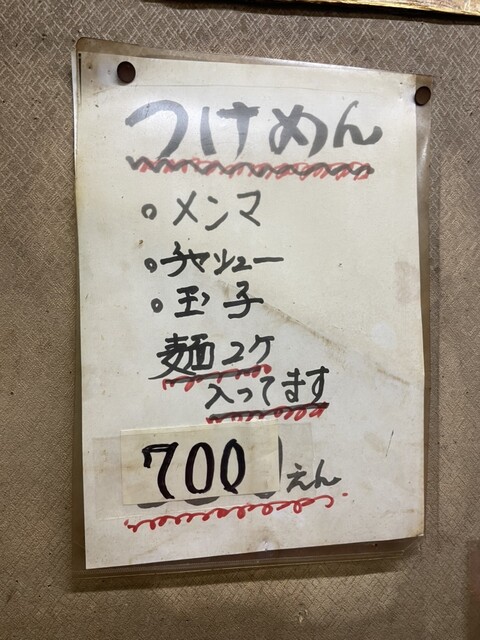 つけめん
○メンマ
○チャシュー
○玉子
麺2ケ
入ってます
700えん